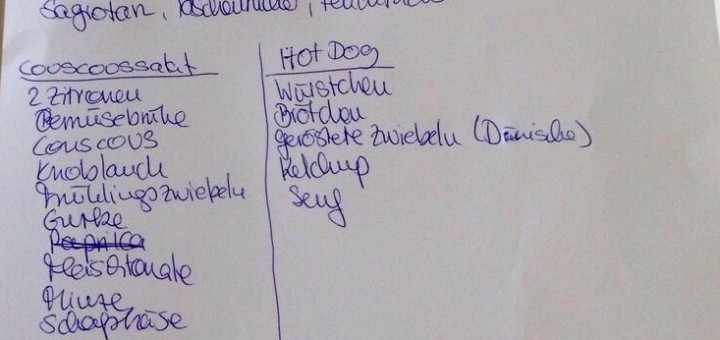 Sagrotan, Taschentücher,
Couscoussalat
2 Zitronen
Gemüsebrühe
Couscous
Knoblauch
Frühlingszwiebeln
Gurke
Paprika
Fleischtomate
Minze
Schafskäse
Hot Dog
Würstchen
Brötchen
geröstete Zwiebeln (Dänische)
Ketchup
Senf